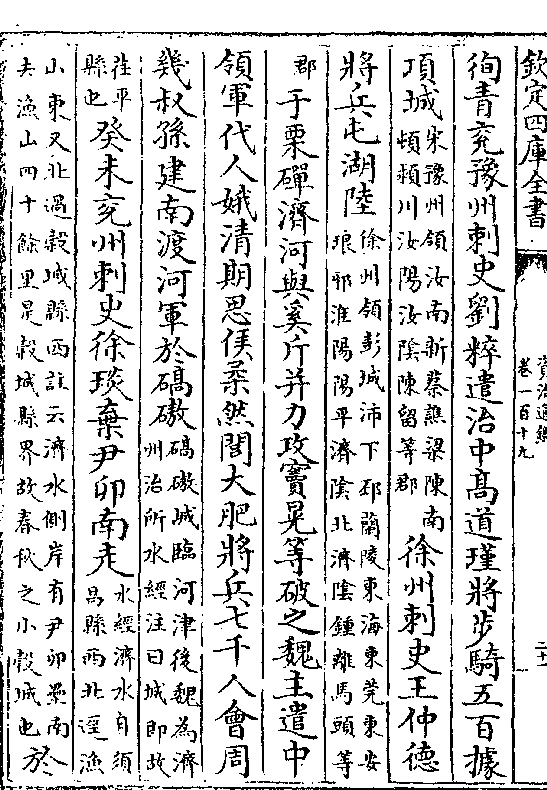 欽定四庫全書
資治通鑑
卷一百十九
二十一
徇青兗豫州刺史劉粹遣治中高道瑾將步騎五百據
項城宋豫州領汝南新蔡譙梁陳南
頓潁川汝陽汝陰陳留等郡徐州刺史王仲德
將兵屯湖陸徐州領彭城沛下邳蘭陵東海東莞東安
琅邪淮陽陽平濟陰北濟陰鍾離馬頭等
郡于栗磾濟河與奚斤并力攻竇晃等破之魏主遣中
領軍代人娥清期思侯柔然閭大肥將兵七千人會周
幾叔孫建南渡河軍於碻磝碻磝城臨河津後魏為濟
州治所水經注曰城即故
茌平
縣也癸未兗州刺史徐琰棄尹卯南走水經濟水自須
昌縣西北逕漁
山東又北過穀城縣西註云濟水側岸有尹卯壘南
去漁山四十餘里是穀城縣界故春秋之小穀城也於